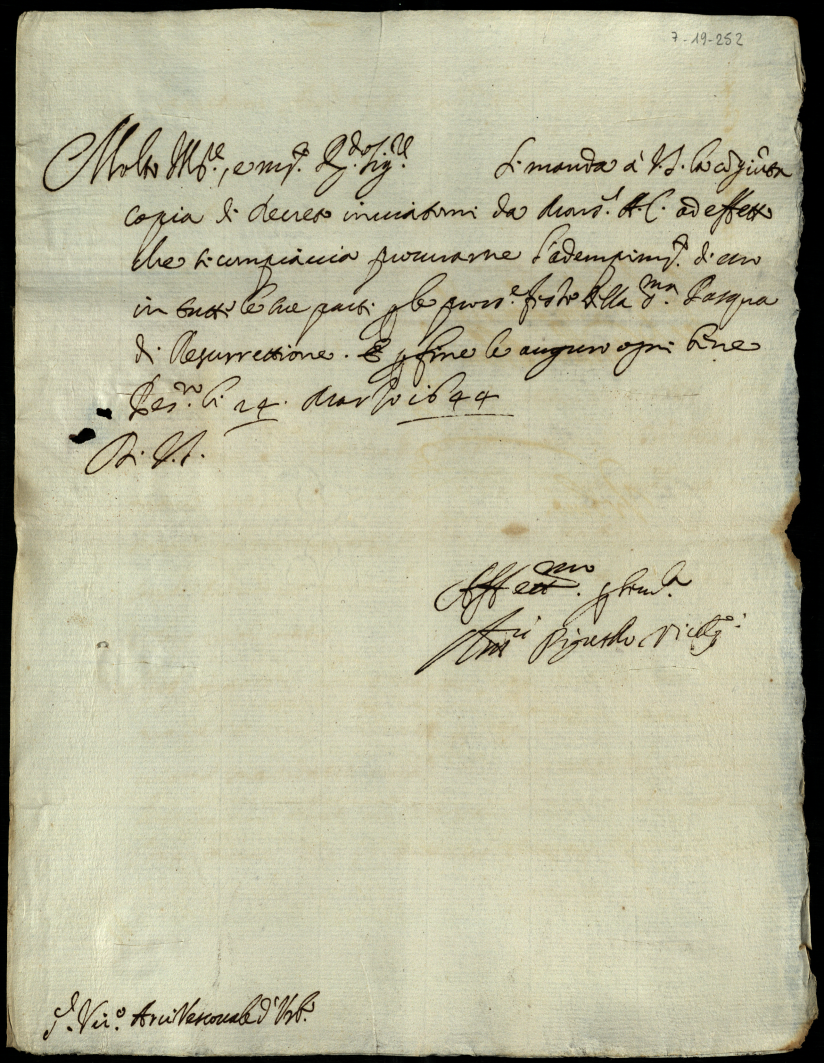 7-19-252
Molto Ill.re, e m.to R.do Sig.re Si manda à V.S. la cõgiũta
copia di decreto inviatomi da Mons.r A.C. ad effetto
che si compiaccia procurarne l'adempim.to di esso
in tutte le sue parti p le pross.e feste della S.ma Pasqua
di Resurrettione. E p fine le auguro ogni bene
Pes.ro li 24. Marzo 1644
Di V.S.
Aff.mo p
Vic.o Arcivescovale d'Urb.o